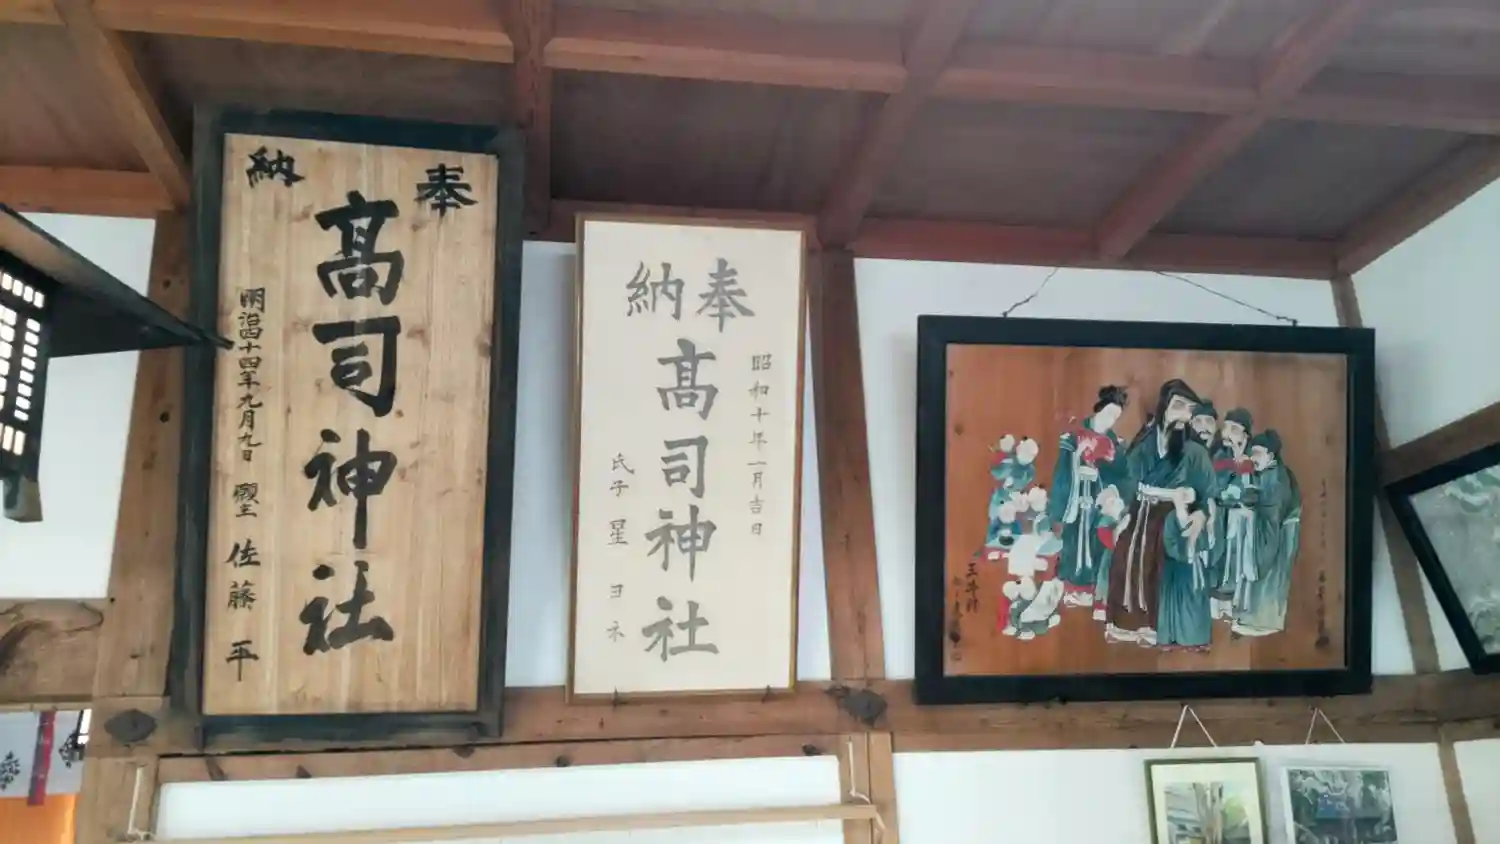 奉納
髙司神社
明治四十四年九月九日 願主 佐藤平
奉納
昭和十年一月吉日
髙司神社
氏子 星ヨネ